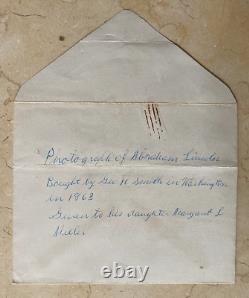 Photograph of Abraham Lincoln
Bought by Geo H Smith in Washington
in 1863
Given to his daughter Margaret L
Miller
ebay